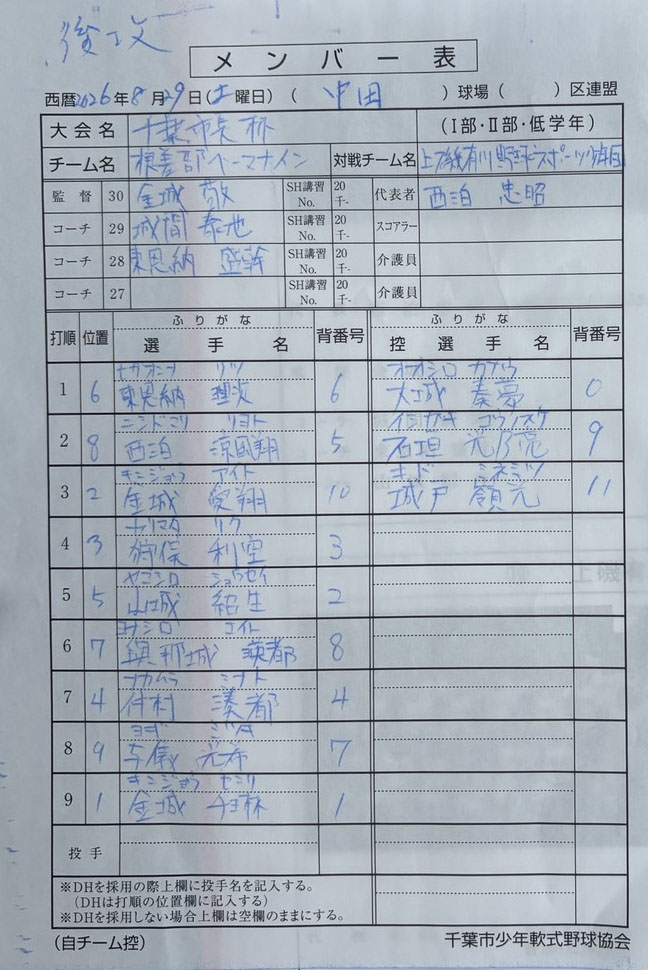 後攻
メンバー表
西暦2026年8月29日(土曜日)( 中田 )球場( )区連盟
大会名 千葉市長杯 (Ⅰ部・Ⅱ部・低学年)
チーム名 対戦チーム名
監督 30 金城 敬 SH講習No. 20千- 代表者 西泊 忠昭
コーチ 29 城間 泰地 SH講習No. 20千- スコアラー
コーチ 28 東恩納 盛幹 SH講習No. 20千- 介護員
コーチ 27 SH講習No. 20千- 介護員
打順 位置 ふりがな 選手名 背番号 ふりがな 控選手名 背番号
リツ オオシロ カナウ
1 6 東恩納 理次 6 大城 奏夢 0
ニシドマリ リヨト イシガキ コウノスケ
2 8 西泊 涼翔 5 石垣 9
キンジョウ アイト キド ミネミツ
3 2 金城 愛翔 10 城戸 嶺元 11
カリマタ リク
4 3 狩俣 利空 3
ヤマシロ ショウセイ
5 5 山城 紹生 2
エイト
6 7 瑛都 8
ナカムラ ミナト
7 4 仲村 湊都 4
ヨギ
8 9 与儀 7
キンジョウ
9 1 金城 1
投手
※DHを採用の際上欄に投手名を記入する。
(DHは打順の位置欄に記入する)
※DHを採用しない場合上欄は空欄のままにする。
(自チーム控) 千葉市少年軟式野球協会